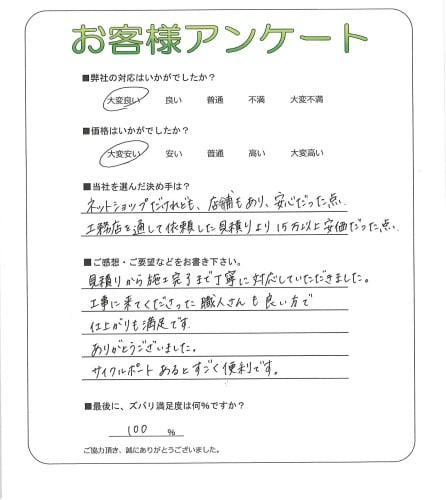 お客様アンケート
■弊社の対応はいかがでしたか?
大変良い 良い 普通 不満 大変不満
■価格はいかがでしたか?
大変安い 安い 普通 高い 大変高い
■当社を選んだ決め手は?
ネットショップだけれども、店舗もあり、安心だった点.
工務店を通して依頼した見積りより15万以上安価だった点.
■ご感想・ご要望などをお書き下さい。
見積りから施工完了まで丁寧に対応していただきました。
工事に来てくださった職人さんも良い方で
仕上がりも満足です.
ありがとうございました。
サイクルポートあるとすごく便利です。
■最後に、ズバリ満足度は何%ですか?
100 %
ご協力頂き、誠にありがとうございました。